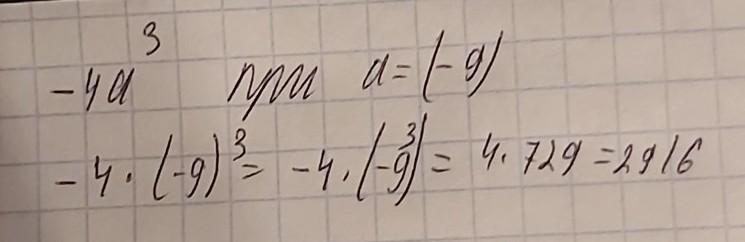 -4a³ при a=(-9)
-4·(-9)³= -4·(-9³)= 4·729=2916